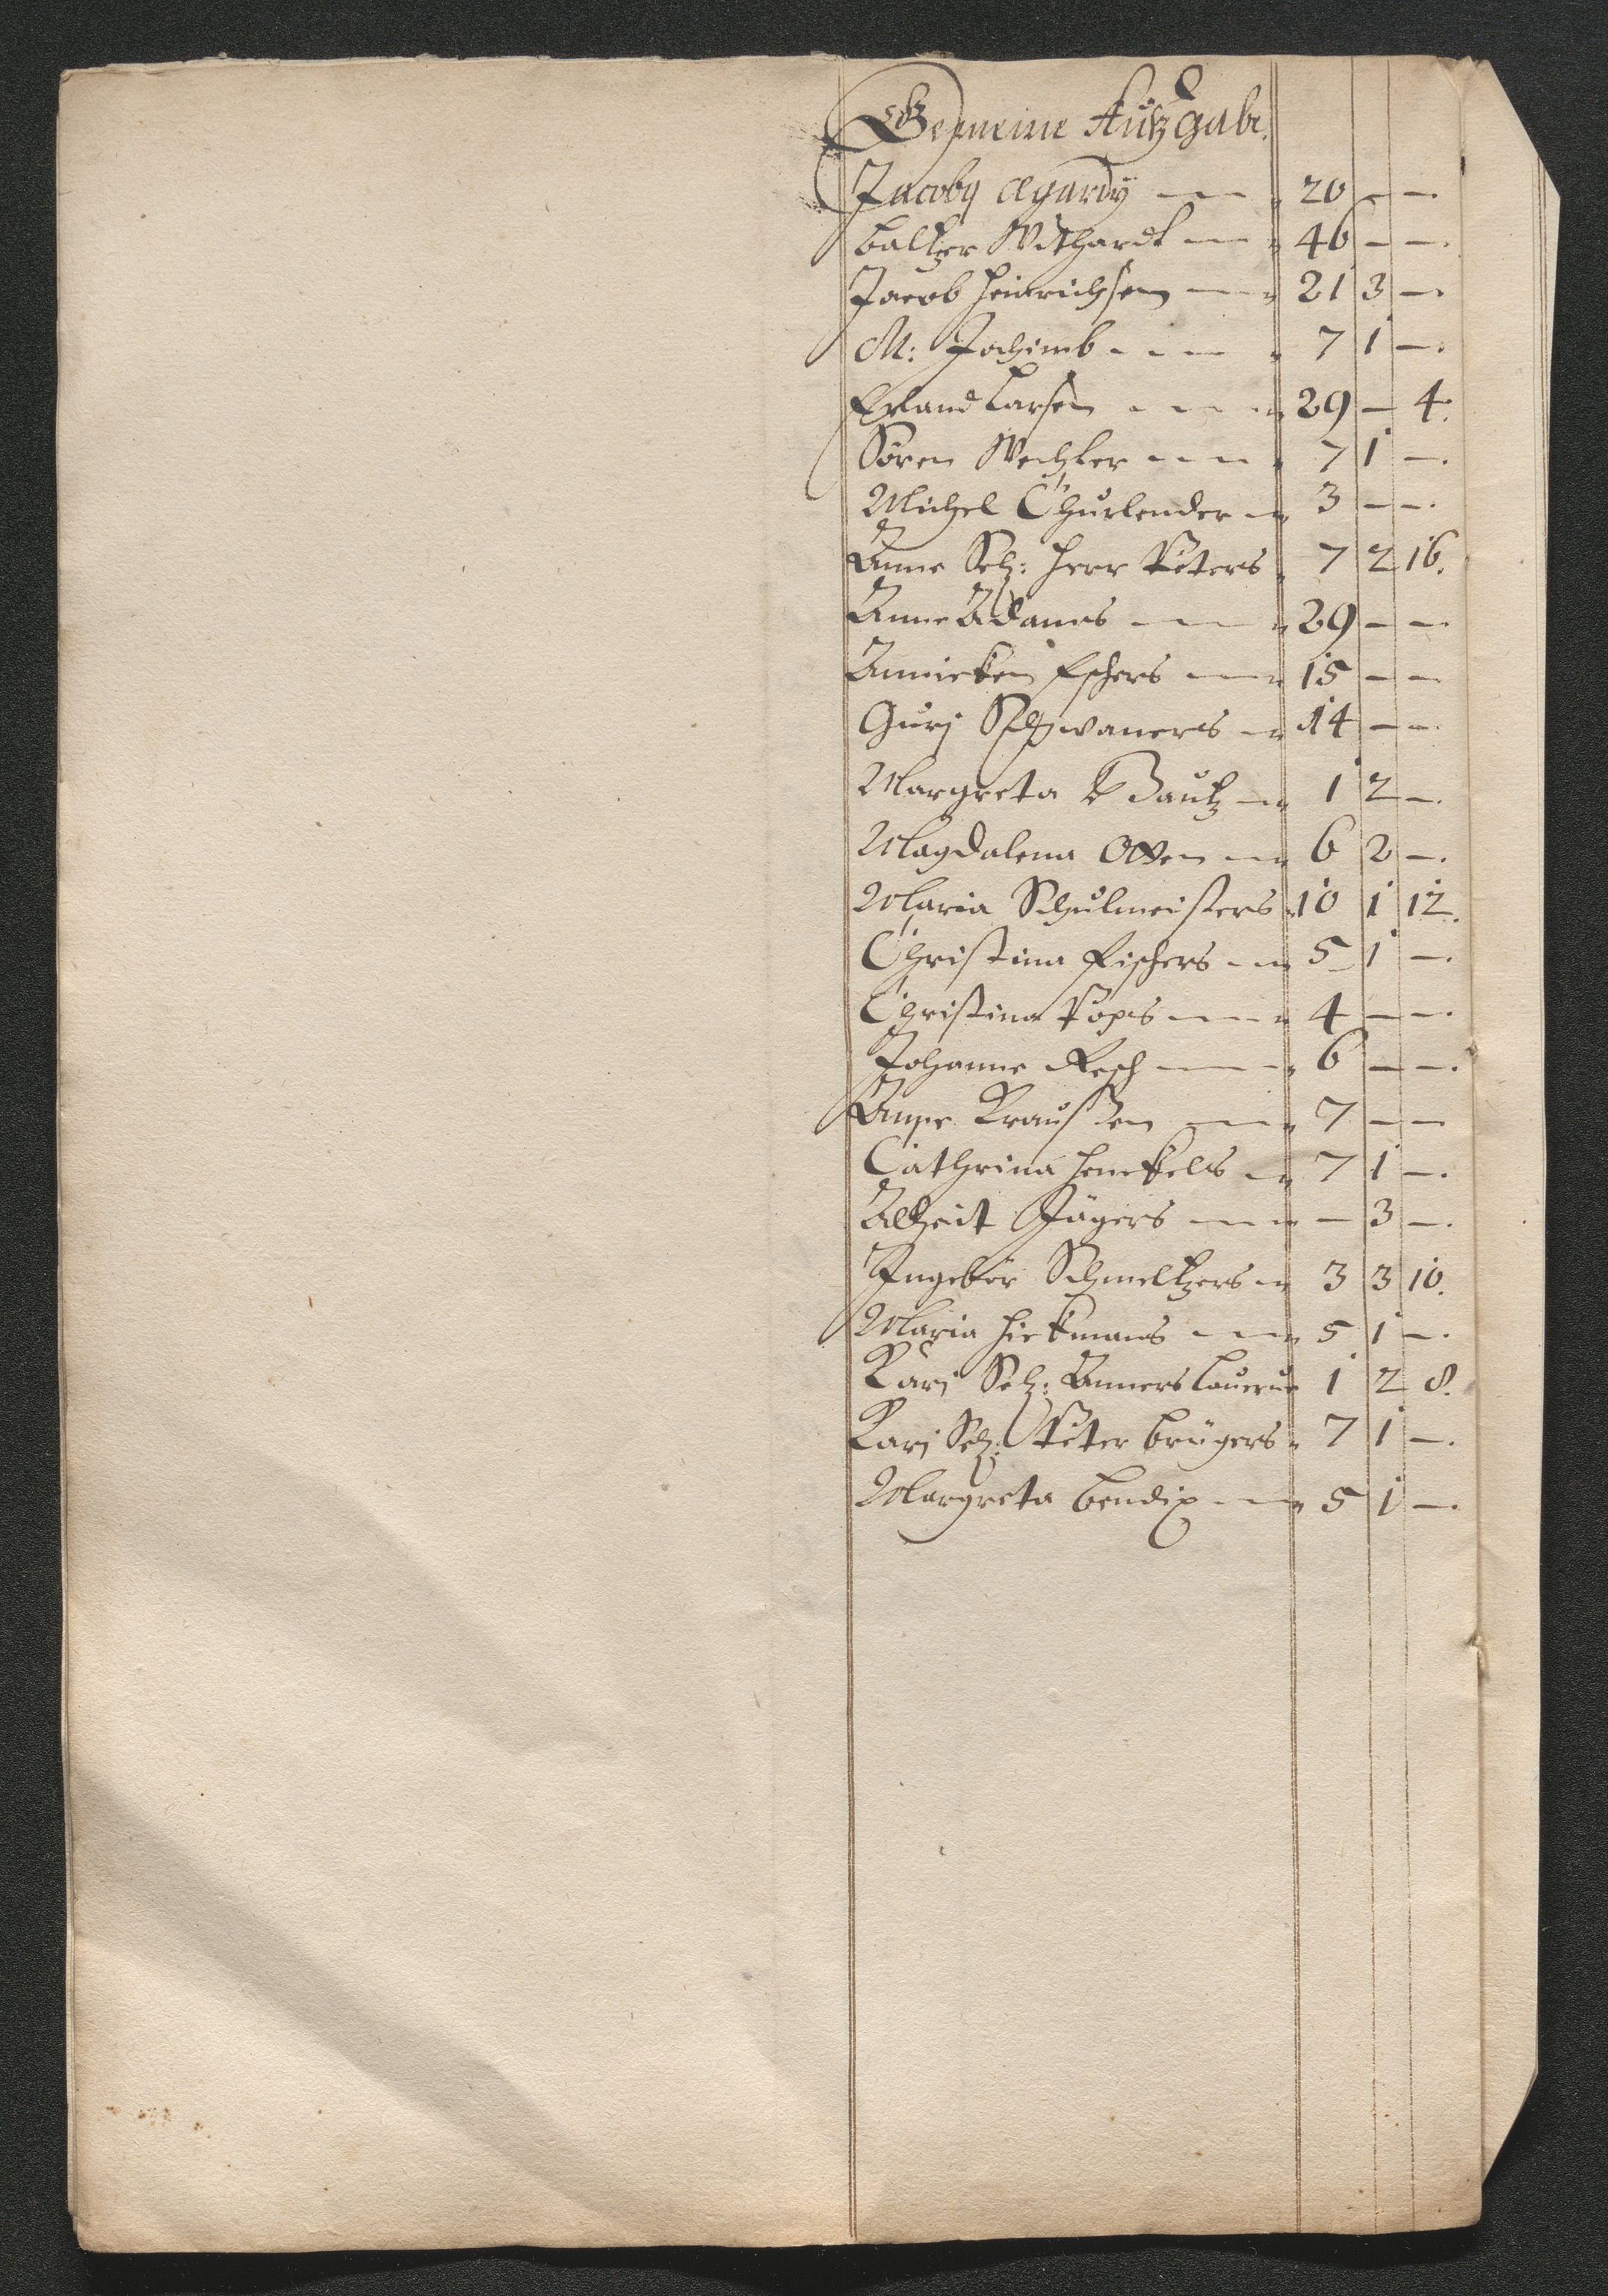 Gemeine Außgabe.
Jacoby Ægardy — — 20 — —.
Baltzer Withardt — 46 — —.
Jacob Heinrichsen — 21 3 —.
M: Jochimb — — — 7 1 —.
Erland Larsen — — — 29 — 4.
Sören Wechter — — — 7 1 —.
Michel Churlender — 3 — —.
Anne Sehl: Herr Peters 7 2 16.
Anne Adams — — — 29 — —
Annicken Eschers — 15 — —
Gurj Schwaners — 14 — —.
Margreta Bautz — 1 2 —.
Magdalena Otten — 6 2 —.
Maria Schulmeisters 10 1 12.
Christina Fischers — 5 1 —.
Christina Popes — — 4 — —.
Johanne Resch — — 6 — —.
Anne Kraußen — — 7 — —
Cathrina Henckels — 7 1 —.
Alheit Jägers — — — 3 —.
Ingebör Schmeltzers — 3 3 10.
Maria Hickmans — — 5 1 —.
Kari Sehl: Anners 1 2 8.
Karj Sehl: Peter Brügers 7 1 —.
Margreta Bendix — — 5 1 —.